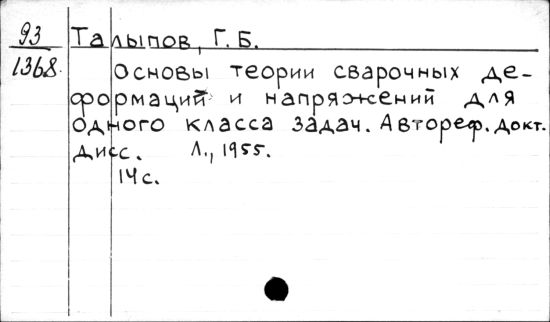 93 Талыпов, Г. Б.
1368. Основы теории сварочных де-
формаций и напряжений для
одного класса задач. Автореф. докт.
дисс. Л., 1955.
14 с.